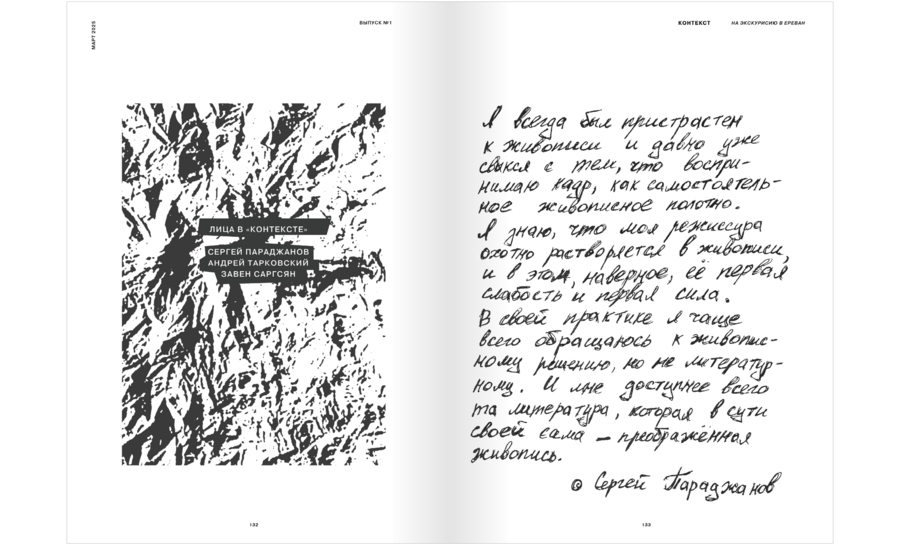 МАРТ 2025
ВЫПУСК №1
ЛИЦА В «КОНТЕКСТЕ»
СЕРГЕЙ ПАРАДЖАНОВ
АНДРЕЙ ТАРКОВСКИЙ
ЗАВЕН САРГСЯН
132
КОНТЕКСТ
НА ЭКСКУРИСИЮ В ЕРЕВАН
Я всегда был пристрастен
к живописи и давно уже
свыкся с тем, что воспри-
нимаю кадр, как самостоятель-
ное живописное полотно.
Я знаю, что моя режиссура
охотно растворяется в живописи,
и в этом, наверное, её первая
слабость и первая сила.
В своей практике я чаще
всего обращаюсь к живопис-
ному решению, но не литератур-
ному. И мне доступнее всего
та литература, которая в сути
своей сама – преображённая
живопись.
© Сергей Параджанов
133